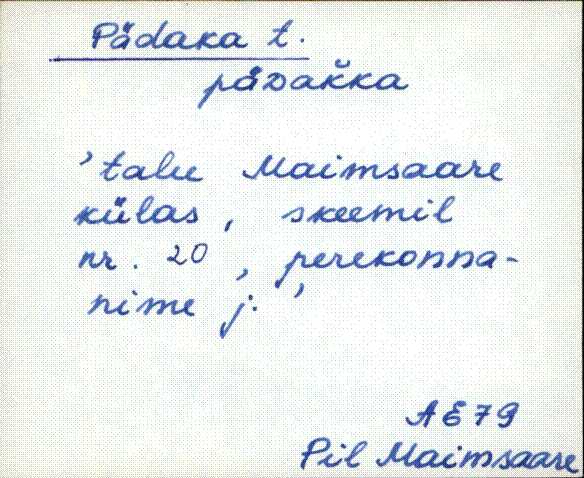 Pädaka t.
pädàkka
'talu Maimsaare
külas, skeemil
nr. 20, perekonna-
nime j.'
AE79
Pil Maimsaare